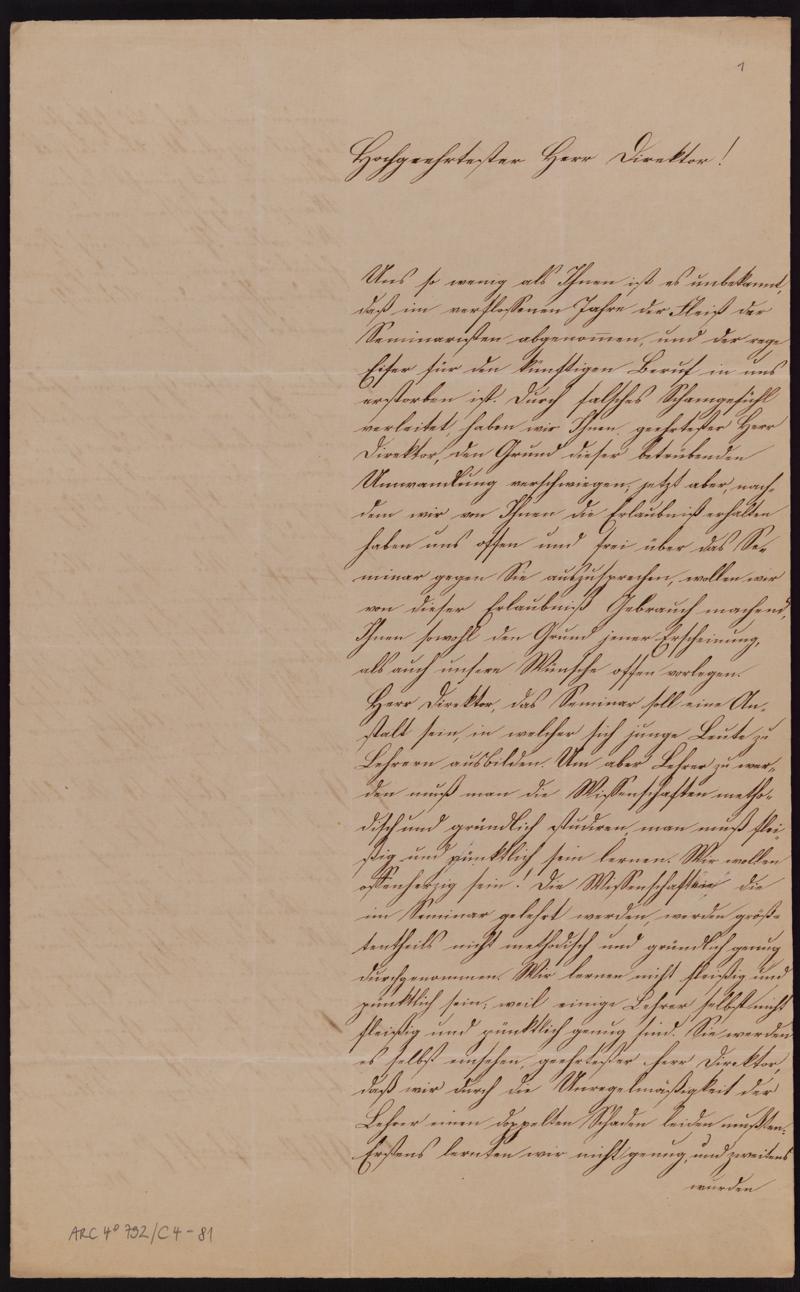 1
Hochgeehrtester Herr Direktor!
Uns so wenig als Ihnen ist es unbekannt,
daß im verflossenen Jahre der Fleiß der
Seminaristen abgenom̄en, und der rege
Eifer für den künftigen Beruf in uns
erstorben ist. Durch falsches Schamgefühl
verleitet, haben wir Ihnen, geehrtester Herr
Direktor, den Grund dieser betrübenden
Umwandlung verschwiegen; jetzt aber, nach-
dem wir von Ihnen die Erlaubniß erhalten
haben uns offen und frei über das Se-
minar gegen Sie auszusprechen, wollen wir
von dieser Erlaubniß Gebrauch machend,
Ihnen sowohl den Grund jener Erscheinung,
als auch unsere Wünsche offen vorlegen.
Herr Direktor, das Seminar soll eine An-
stalt sein, in welcher sich junge Leute zu
Lehrern ausbilden. Um aber Lehrer zu wer-
den muß man die Wissenschaften metho-
disch und gründlich studiren, man muß flei-
ßig und pünktlich sein lernen. Wir wollen
offenherzig sein! Die Wissenschaften die
im Seminar gelehrt werden, werden größ-
tentheils nicht methodisch und gründlich genug
durchgenommen. Wir lernen nicht fleißig und
pünktlich sein, weil einige Lehrer selbst nicht
fleißig und pünktlich genug sind. Sie werden
es selbst einsehen, geehrtester Herr Direktor,
daß wir durch die Unregelmäßigkeit der
Lehrer einen doppelten Schaden leiden mußten.
Erstens lernten wir nicht genug, und zweitens
wurden
ARC 4° 792/C4-81